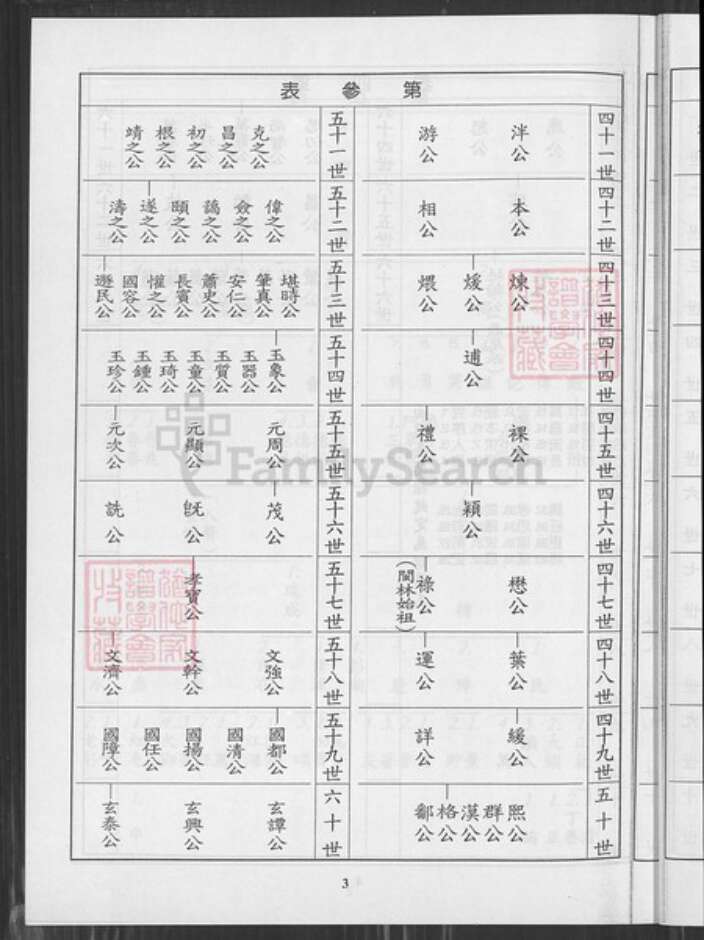 第參表
四十一世
泮公
游公
四十二世
本公
相公
四十三世
煉公
煖公
煨公
四十四世
逋公
四十五世
裸公
禮公
四十六世
穎公
四十七世
懋公
祿公
(閩林始祖)
四十八世
葉公
運公
四十九世
緩公
詳公
五十世
熙公
群公
漢公
格公
鄒公
五十一世
克之公
昌之公
初之公
根之公
靖之公
五十二世
偉之公
僉之公
藹之公
頤之公
遂之公
濤之公
五十三世
堪時公
肇真公
安仁公
蕭史公
長賓公
懽之公
國容公
遯民公
五十四世
玉象公
玉器公
玉質公
玉童公
玉琦公
玉鍾公
玉珍公
五十五世
元周公
元顯公
元次公
五十六世
茂公
既公
詵公
五十七世
孝寶公
五十八世
文強公
文幹公
文濟公
五十九世
國都公
國清公
國揚公
國任公
國障公
六十世
玄譚公
玄興公
玄泰公
FamilySearch
3